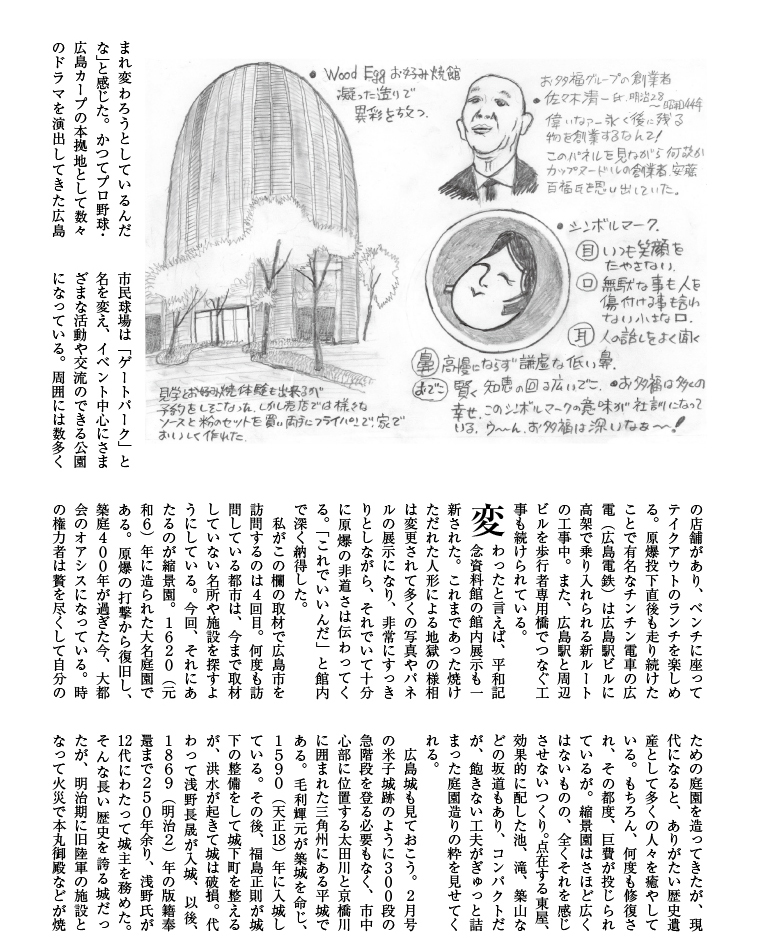 まれ変わろうとしているんだ
な」と感じた。かつてプロ野球・
広島カープの本拠地として数々
のドラマを演出してきた広島
市民球場は「ゲートパーク」と
名を変え、イベント中心にさま
ざまな活動や交流のできる公園
になっている。周囲には数多く
• Wood Egg お好み焼館
凝った造りで
異彩を放つ。
お多福グループの創業者
• 佐々木清一氏.明治28
〜昭和44年
偉いなァー永く後に残る
物を創業するなんて!
このパネルを見ながら何故か
カップヌードルの創業者、安藤
百福氏を思い出していた。
• シンボルマーク.
目 いつも笑顔を
たやさない.
口 無駄な事も人を
傷付ける事も言わ
ない小さな口.
耳 人の話しをよく聞く
鼻 高慢にならず謙虚な低い鼻.
おでこ 賢く知恵の回る広いおでこ. •お多福は多くの
幸せ.このシンボルマークの意味が社訓になって
いる.ウ〜ん.お多福は深いなぁ〜!
見学とお好み焼体験も出来るが
予約をしてこなかった.しかし売店では様々な
ソースと粉のセットを買い両手にフライパン!で、家で
おいしく作れた.
の店舗があり、ベンチに座って
テイクアウトのランチを楽しめ
る。原爆投下直後も走り続けた
ことで有名なチンチン電車の広
電（広島電鉄）は広島駅ビルに
高架で乗り入れられる新ルート
の工事中。また、広島駅と周辺
ビルを歩行者専用橋でつなぐ工
事も続けられている。
変わったと言えば、平和記
念資料館の館内展示も一
新された。これまであった焼け
ただれた人形による地獄の様相
は変更されて多くの写真やパネ
ルの展示になり、非常にすっき
りとしながら、それでいて十分
に原爆の非道さは伝わってく
る。「これでいいんだ」と館内
で深く納得した。
私がこの欄の取材で広島市を
訪問するのは４回目。何度も訪
問している都市は、今まで取材
していない名所や施設を探すよ
うにしている。今回、それにあ
たるのが縮景園。１６２０（元
和６）年に造られた大名庭園で
ある。原爆の打撃から復旧し、
築庭４００年が過ぎた今、大都
会のオアシスになっている。時
の権力者は贅を尽くして自分の
ための庭園を造ってきたが、現
代になると、ありがたい歴史遺
産として多くの人々を癒やして
いる。もちろん、何度も修復さ
れ、その都度、巨費が投じられ
ているが。縮景園はさほど広く
はないものの、全くそれを感じ
させないつくり。点在する東屋、
効果的に配した池、滝、築山な
どの坂道もあり、コンパクトだ
が、飽きない工夫がぎゅっと詰
まった庭園造りの粋を見せてく
れる。
広島城も見ておこう。２月号
の米子城跡のように３００段の
急階段を登る必要もなく、市中
心部に位置する太田川と京橋川
に囲まれた三角州にある平城で
ある。毛利輝元が築城を命じ、
１５９０（天正18）年に入城し
ている。その後、福島正則が城
下の整備をして城下町を整える
が、洪水が起きて城は破損。代
わって浅野長晟が入城、以後、
１８６９（明治２）年の版籍奉
還まで２５０年余り、浅野氏が
12代にわたって城主を務めた。
そんな長い歴史を誇る城だっ
たが、明治期に旧陸軍の施設と
なって火災で本丸御殿などが焼